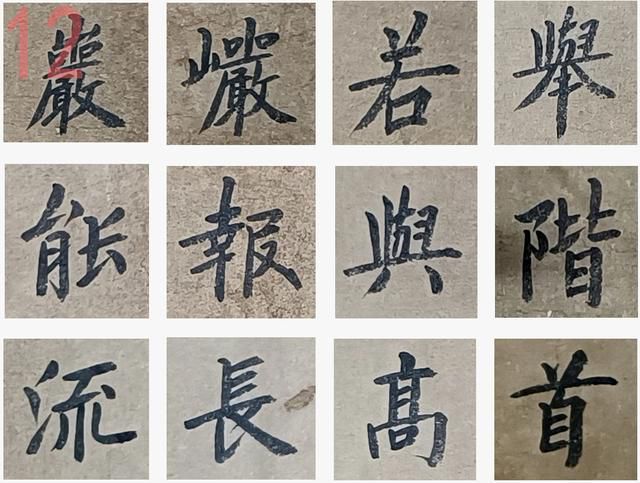 12
嚴巖若舉
能報與階
流長髙首